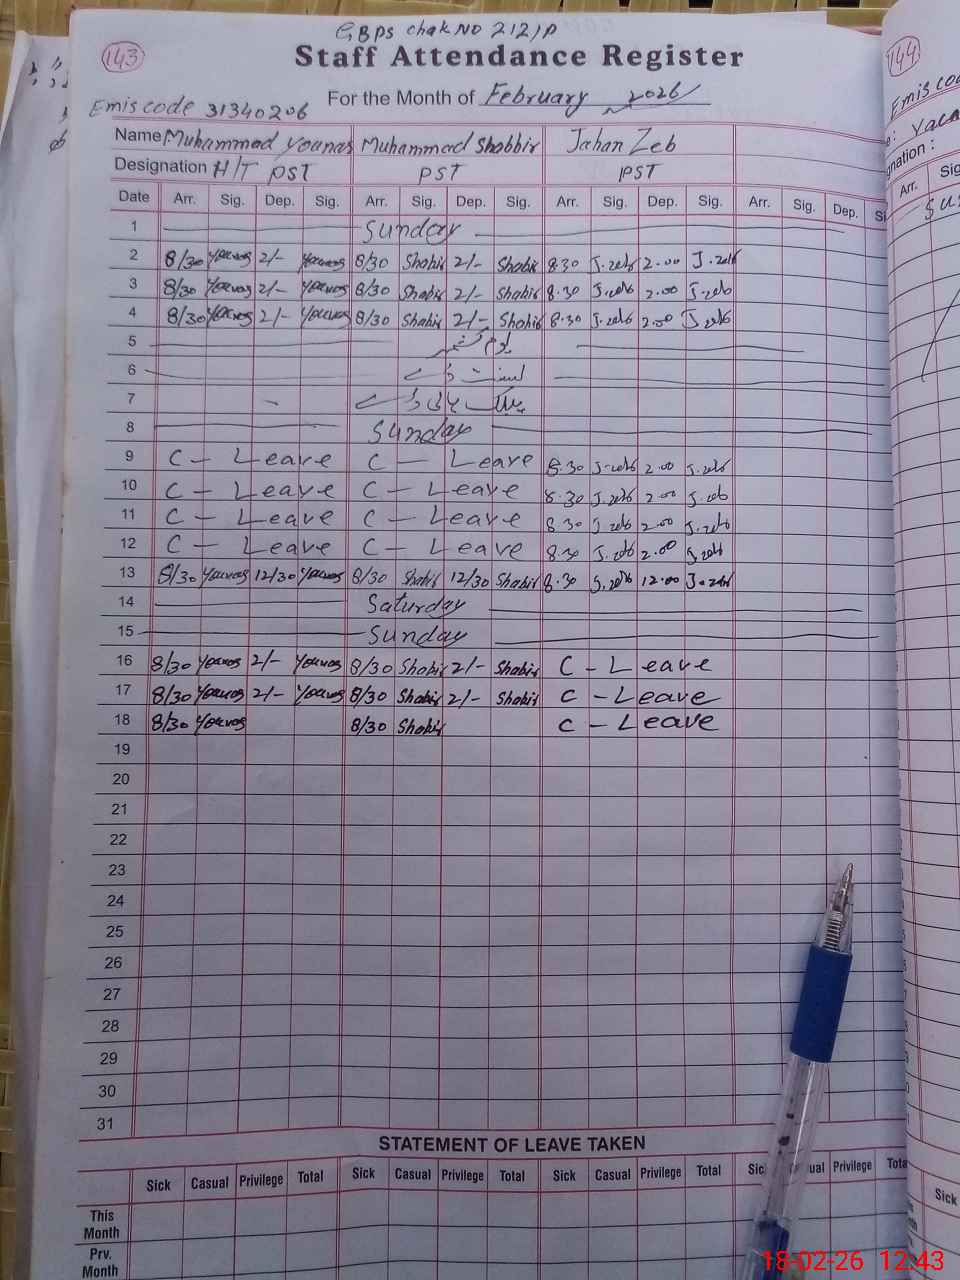 GBPS chak No 212/P
143
Staff Attendance Register
144
Emis code 31340206
For the Month of February 2026
Name Muhammad Younas Muhammad Shabbir Jahan Zeb
Designation H/T PST PST PST
Date Arr. Sig. Dep. Sig. Arr. Sig. Dep. Sig. Arr. Sig. Dep. Sig. Arr. Sig. Dep.
1 Sunday
2 8/30 Younas 2/- Younas 8/30 Shabir 2/- Shabir 8.30 J.zeb 2.00 J.zeb
3 8/30 Younas 2/- Younas 8/30 Shabir 2/- Shabir 8.30 J.zeb 2.00 J.zeb
4 8/30 Younas 2/- Younas 8/30 Shabir 2/- Shabir 8.30 J.zeb 2.00 J.zeb
5 یوم کشمیر
6
7
8 Sunday
9 C - Leave C - Leave 8.30 J.zeb 2.00 J.zeb
10 C - Leave C - Leave 8.30 J.zeb 2.00 J.zeb
11 C - Leave C - Leave 8.30 J.zeb 2.00 J.zeb
12 C - Leave C - Leave 8.30 J.zeb 2.00 J.zeb
13 8/30 Younas 12/30 Younas 8/30 Shabir 12/30 Shabir 8.30 J.zeb 12.00 J.zeb
14 Saturday
15 Sunday
16 8/30 Younas 2/- Younas 8/30 Shabir 2/- Shabir C - Leave
17 8/30 Younas 2/- Younas 8/30 Shabir 2/- Shabir C - Leave
18 8/30 Younas 8/30 Shabir C - Leave
19
20
21
22
23
24
25
26
27
28
29
30
31
STATEMENT OF LEAVE TAKEN
Sick Casual Privilege Total Sick Casual Privilege Total Sick Casual Privilege Total Privilege
This Month
Prv. Month
Arr.
Sick
18-02-26 12:43